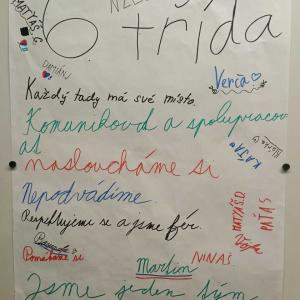 MATYÁŠ G.
6. třída
DAMIÁN
Verča
Každý tady má své místo.
Komunikovat a spolupracov
at
nasloucháme si
KÁŤA
Nepodvádíme.
MATYÁŠ D.
MATÁŠ
Respektujeme se a jsme fér.
Pomáháme si.
Martin
NINAŠ
Jsme jeden tým